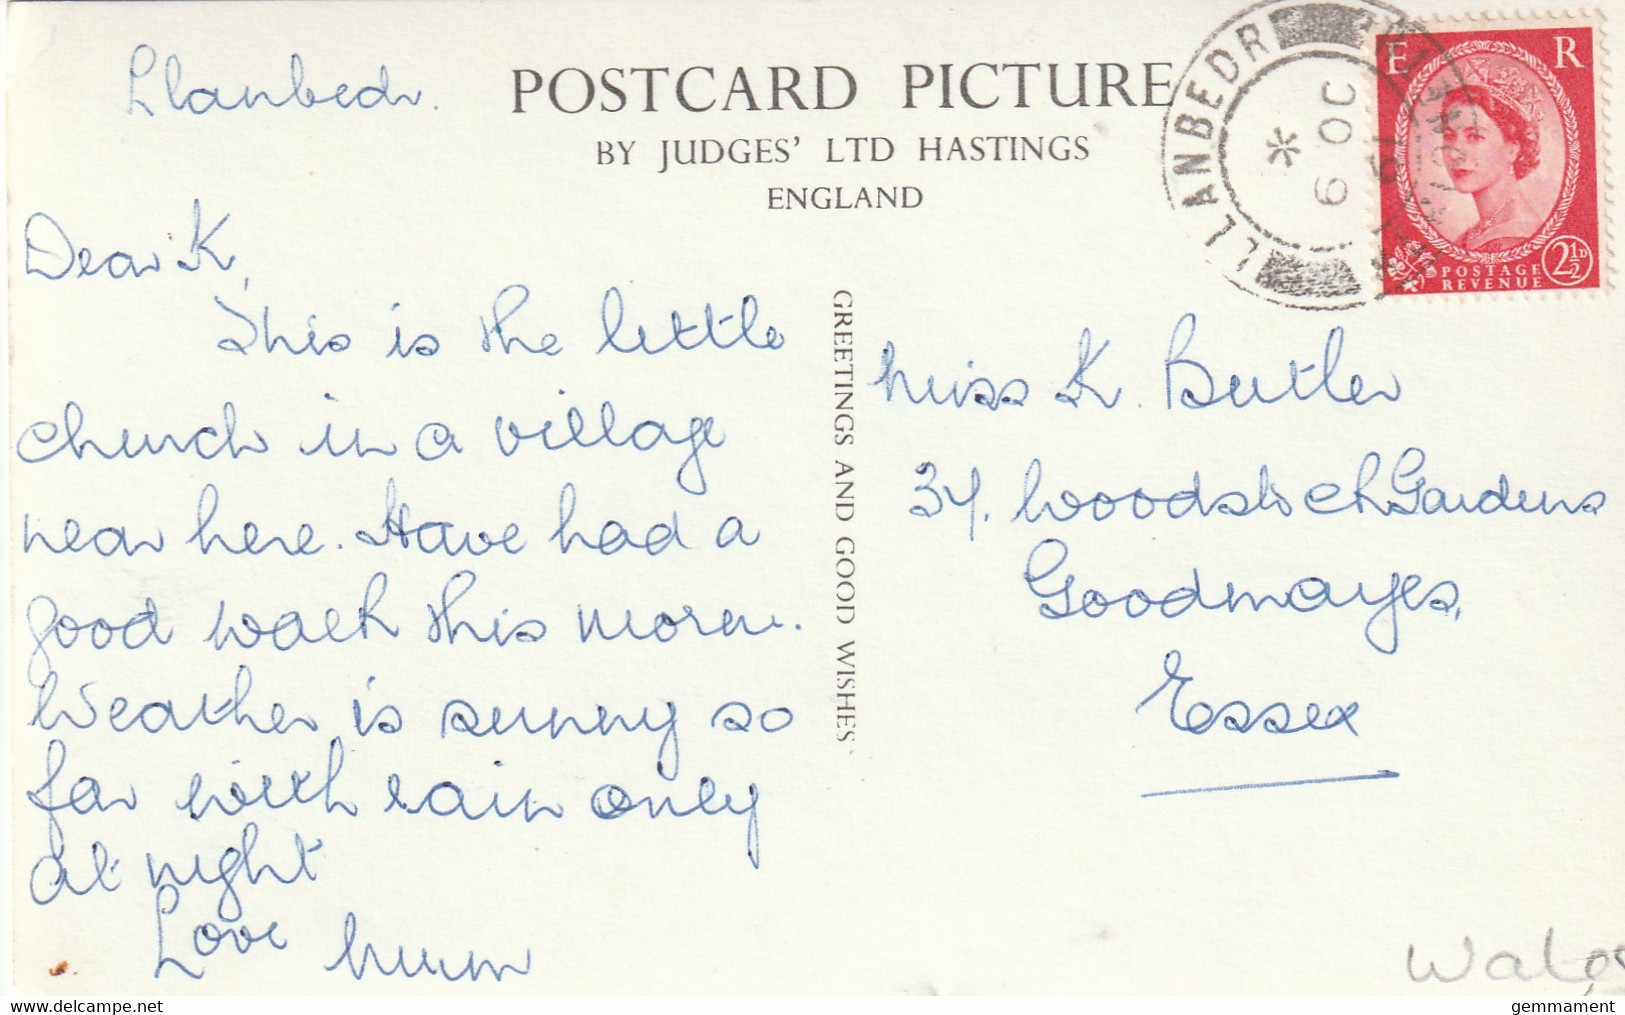 Llanbedr.
POSTCARD PICTURE
BY JUDGES' LTD HASTINGS
ENGLAND
LLANBEDR
9 OC
19
E R
POSTAGE
REVENUE
2½D
Dear K,
This is the little
church in a village
near here. Have had a
good walk this morn.
Weather is sunny so
far with rain only
at night
Love Mum
GREETINGS AND GOOD WISHES
Miss K. Butler
34, Woodstock Gardens
Goodmayes,
Essex
Wales
gemmament